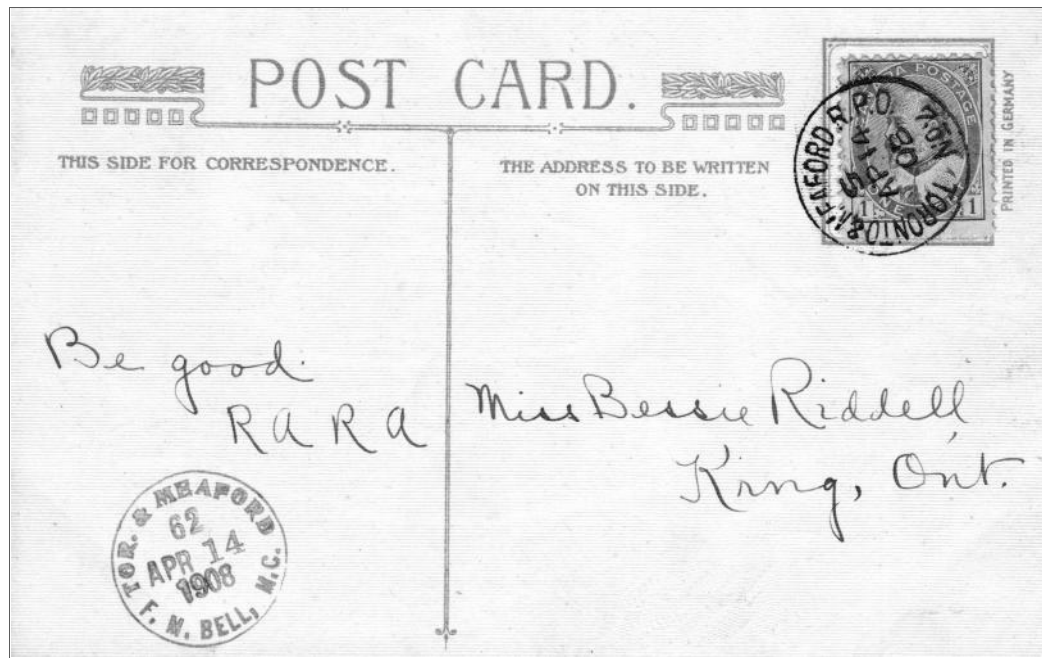 POST CARD.
THIS SIDE FOR CORRESPONDENCE.
THE ADDRESS TO BE WRITTEN
ON THIS SIDE.
PRINTED IN GERMANY
POSTAGE
1 ONE 1
TORONTO & MEAFORD R.P.O.
AP 14
08
Be good.
RARA
Miss Bessie Riddell
King, Ont.
TOR. & MEAFORD
62
APR 14
1908
F. M. BELL, M.C.